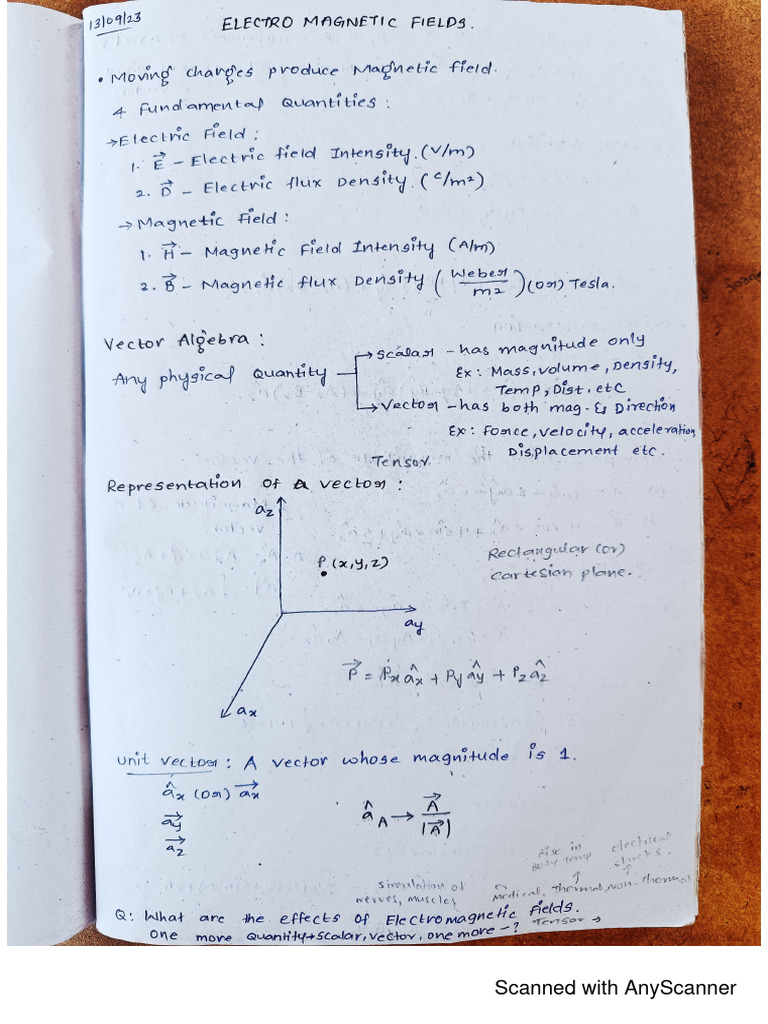 13/09/23
ELECTRO MAGNETIC FIELDS.
• Moving charges produce Magnetic field.
4 Fundamental Quantities:
→ Electric Field:
1. E⃗ - Electric field Intensity. (V/m)
2. D⃗ - Electric flux Density. (C/m2)
→ Magnetic Field:
1. H⃗ - Magnetic Field Intensity (A/m)
2. B⃗ - Magnetic flux Density (Weber/m2) (or) Tesla.
Vector Algebra:
Any physical Quantity
→ Scalar - has magnitude only
Ex: Mass, volume, Density,
Temp, Dist. etc
→ Vector - has both mag. & Direction
Ex: force, velocity, acceleration,
Displacement etc.
Tensor.
Representation of a vector:
az
P. (x,y,z)
Rectangular (or)
Cartesian plane.
ay
P⃗ = Px âx + Py ây + Pz âz
ax
Unit vector: A vector whose magnitude is 1.
âx (or) a⃗x
a⃗y
a⃗z
âA → A⃗/|A⃗|
Rise in
Body temp
electrical
simulation of
nerves, muscles
Medical, Thermal, non-thermal
Q: What are the effects of Electromagnetic Fields.
One more Quantity → scalar, vector, one more - ? Tensor →
Scanned with AnyScanner